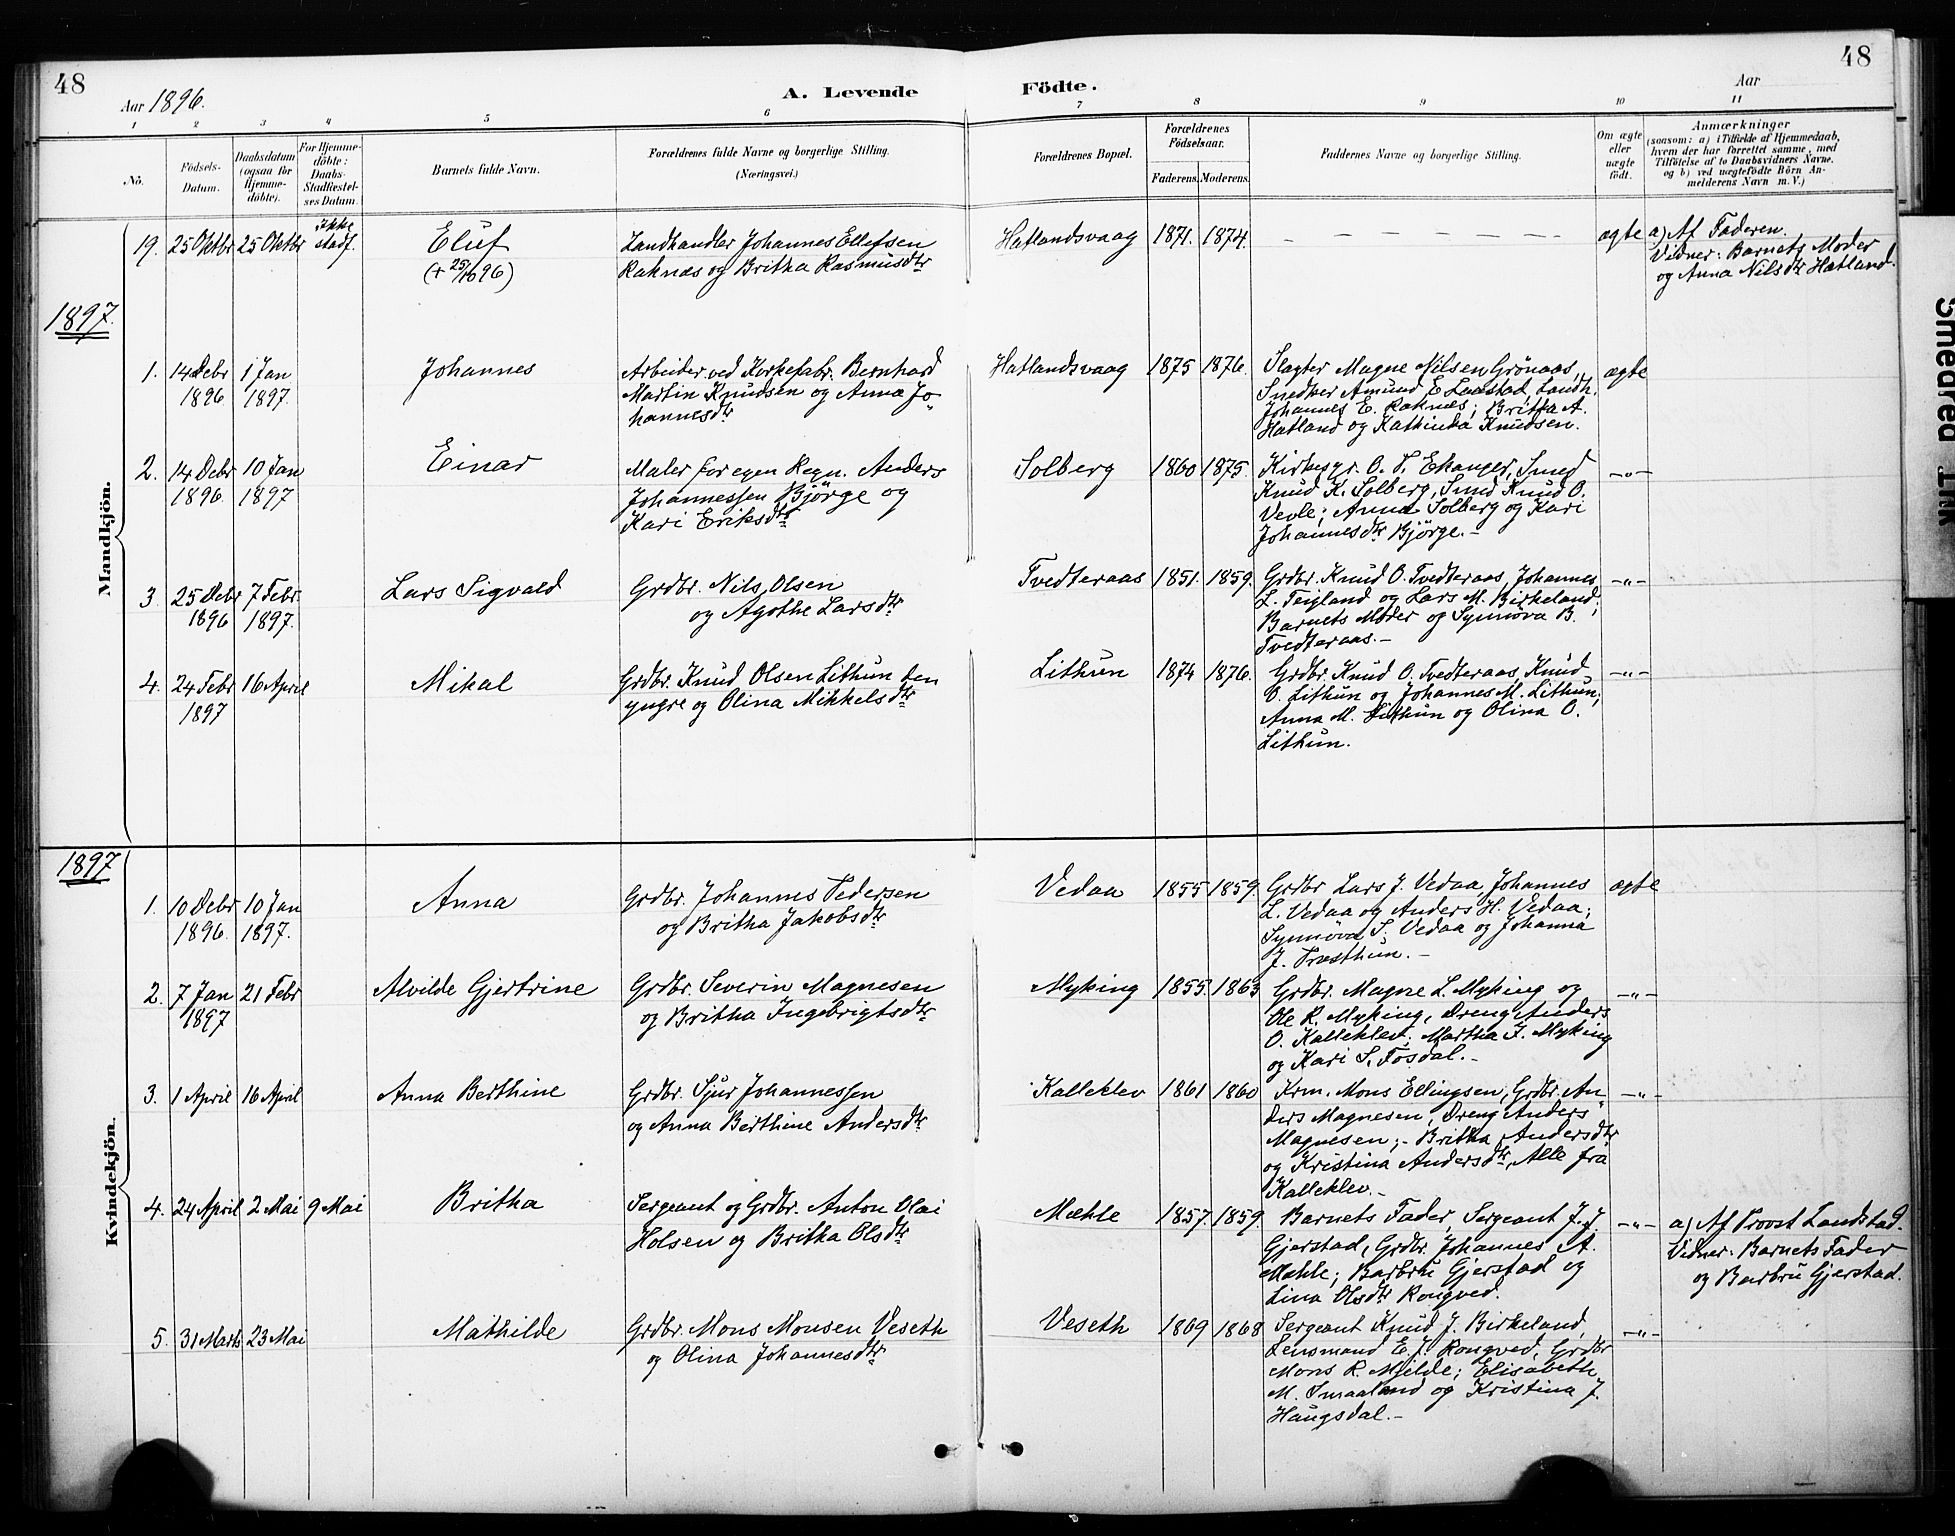 48
48
Aar 1896.
A. Levende Födte.
Aar
1 2 3 4 5 6 7 8 9 10 11
No.
Födsels-Datum.
Daabsdatum (ogsaa for Hjemmedöbte).
For Hjemmedöbte: Daabs-Stadfæstelses Datum.
Barnets fulde Navn.
Forældrenes fulde Navne og borgerlige Stilling.
(Næringsvei.)
Forældrenes Bopæl.
Forældrenes Födselsaar.
Faderens. Moderens.
Faddernes Navne og borgerlige Stilling.
Om ægte eller uægte födt.
Anmærkninger
(saasom: a) i Tilfælde af Hjemmedaab,
hvem der har forrettet samme, med
Tilföielse af to Daabsvidners Navne,
og b) ved uægtefödte Börn An-
melderens Navn m. V.)
Mandkjön.
19. 25 Oktbr 25 Oktbr ikke stadf. Eluf (+ 25/10 96)
Landhandler Johannes Ellefsen
Raknæs og Britha Rasmusdtr
Hatlandsvaag 1871. 1874. — — — — — — ægte
a) Af Faderen.
Vidner: Barnets Moder
og Anna Nilsdtr Hatland.
1897.
1. 14 Debr 1896 1 Jan 1897. Johannes
Arbeider ved Korkefabr. Bernhard
Martin Knudsen og Anna Jo-
hannesdtr
Hatlandsvaag 1875 1876.
Slagter Magne Nilsen Grönaas,
Snedker Amund E Laastad, Landh.
Johannes E. Raknæs; Britha A.
Hatland og Kathinka Knudsen.
ægte
2. 14 Debr 1896 10 Jan 1897 Einar
Maler for egen Regn. Anders
Johannessen Björge og
Kari Eriksdtr
Solberg 1860 1875.
Kirkesgr. O. T. Ekanger, Smed
Knud K. Solberg, Smed Knud O.
Vevle; Anna Solberg og Kari
Johannesdtr Björge.—
—"—
3 25 Debr 1896 7 Febr. 1897. Lars Sigvald
Grdbr. Nils Olsen
og Agothe Larsdtr
Tvedteraas 1851. 1859.
Grdbr. Knud O. Tvedteraas, Johannes
L. Teigland og Lars M. Birkeland;
Barnets Moder og Synnöva B.
Tvedteraas.—
—"—
4. 24 Febr 1897 16 April Mikal
Grdbr. Knud Olsen Lithun den
yngre og Olina Mikkelsdtr
Lithun 1874 1876.
Grdbr. Knud O. Tvedteraas, Knud
O. Lithun og Johannes M. Lithun;
Anna M. Lithun og Olina O.
Lithun.
—"—
1897
Kvindekjön.
1. 10 Debr 1896. 10 Jan 1897. Anna
Grdbr. Johannes Pedersen
og Britha Jakobsdtr
Vedaa 1855 1859.
Grdbr Lars J. Vedaa, Johannes
L. Vedaa og Anders H. Vedaa;
Synnöva S. Vedaa og Johanna
J. Træsthun.—
ægte
2. 7 Jan 1897 21 Febr Alvilde Gjertrine
Grdbr. Severin Magnesen
og Britha Ingebrigtsdtr
Myking 1855. 1863
Grdbr. Magne L. Myking og
Ole R. Myking, Dreng Anders
O. Kalleklev; Martha I. Myking
og Kari S. Fosdal.—
—"—
3. 1 April 16 April Anna Berthine
Grdbr. Sjur Johannessen
og Anna Berthine Andersdtr
Kalleklev 1861 1860
Krm. Mons Ellingsen, Grdbr. An-
ders Magnesen, Dreng Anders
Magnesen;— Britha Andersdtr
og Kristina Andersdtr, Alle fra
Kalleklev.—
—"—
4. 24 April 2 Mai 9 Mai Britha
Sergeant og Grdbr. Anton Olai
Holsen og Britha Olsdtr
Mæhle 1857. 1859.
Barnets Fader, Sergeant J. J.
Gjerstad, Grdbr. Johannes A.
Mæhle; Barbru Gjerstad og
Lina Olsdtr Rongved.
—"—
a) Af Provst Landstad.
Vidner: Barnets Fader
og Barbru Gjerstad.
5. 31 Marts 23 Mai Mathilde
Grdbr. Mons Monsen Veseth
og Olina Johannesdtr
Veseth 1869 1868
Sergeant Knud J. Birkeland,
Lensmand E. J. Rongved, Grdbr
Mons R. Mjelde; Elisabeth
M. Smaaland og Kristina J.
Haugsdal.—
—"—